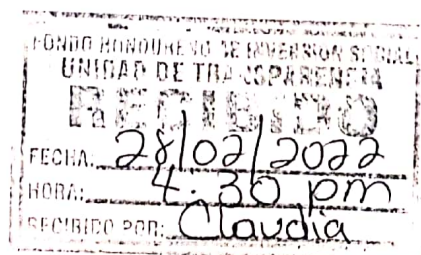 FONDO HONDUREÑO DE INVERSION SOCIAL
UNIDAD DE TRANSPARENCIA
RECIBIDO
FECHA: 28/02/2022
HORA: 4:30 pm
RECIBIDO POR: Claudia